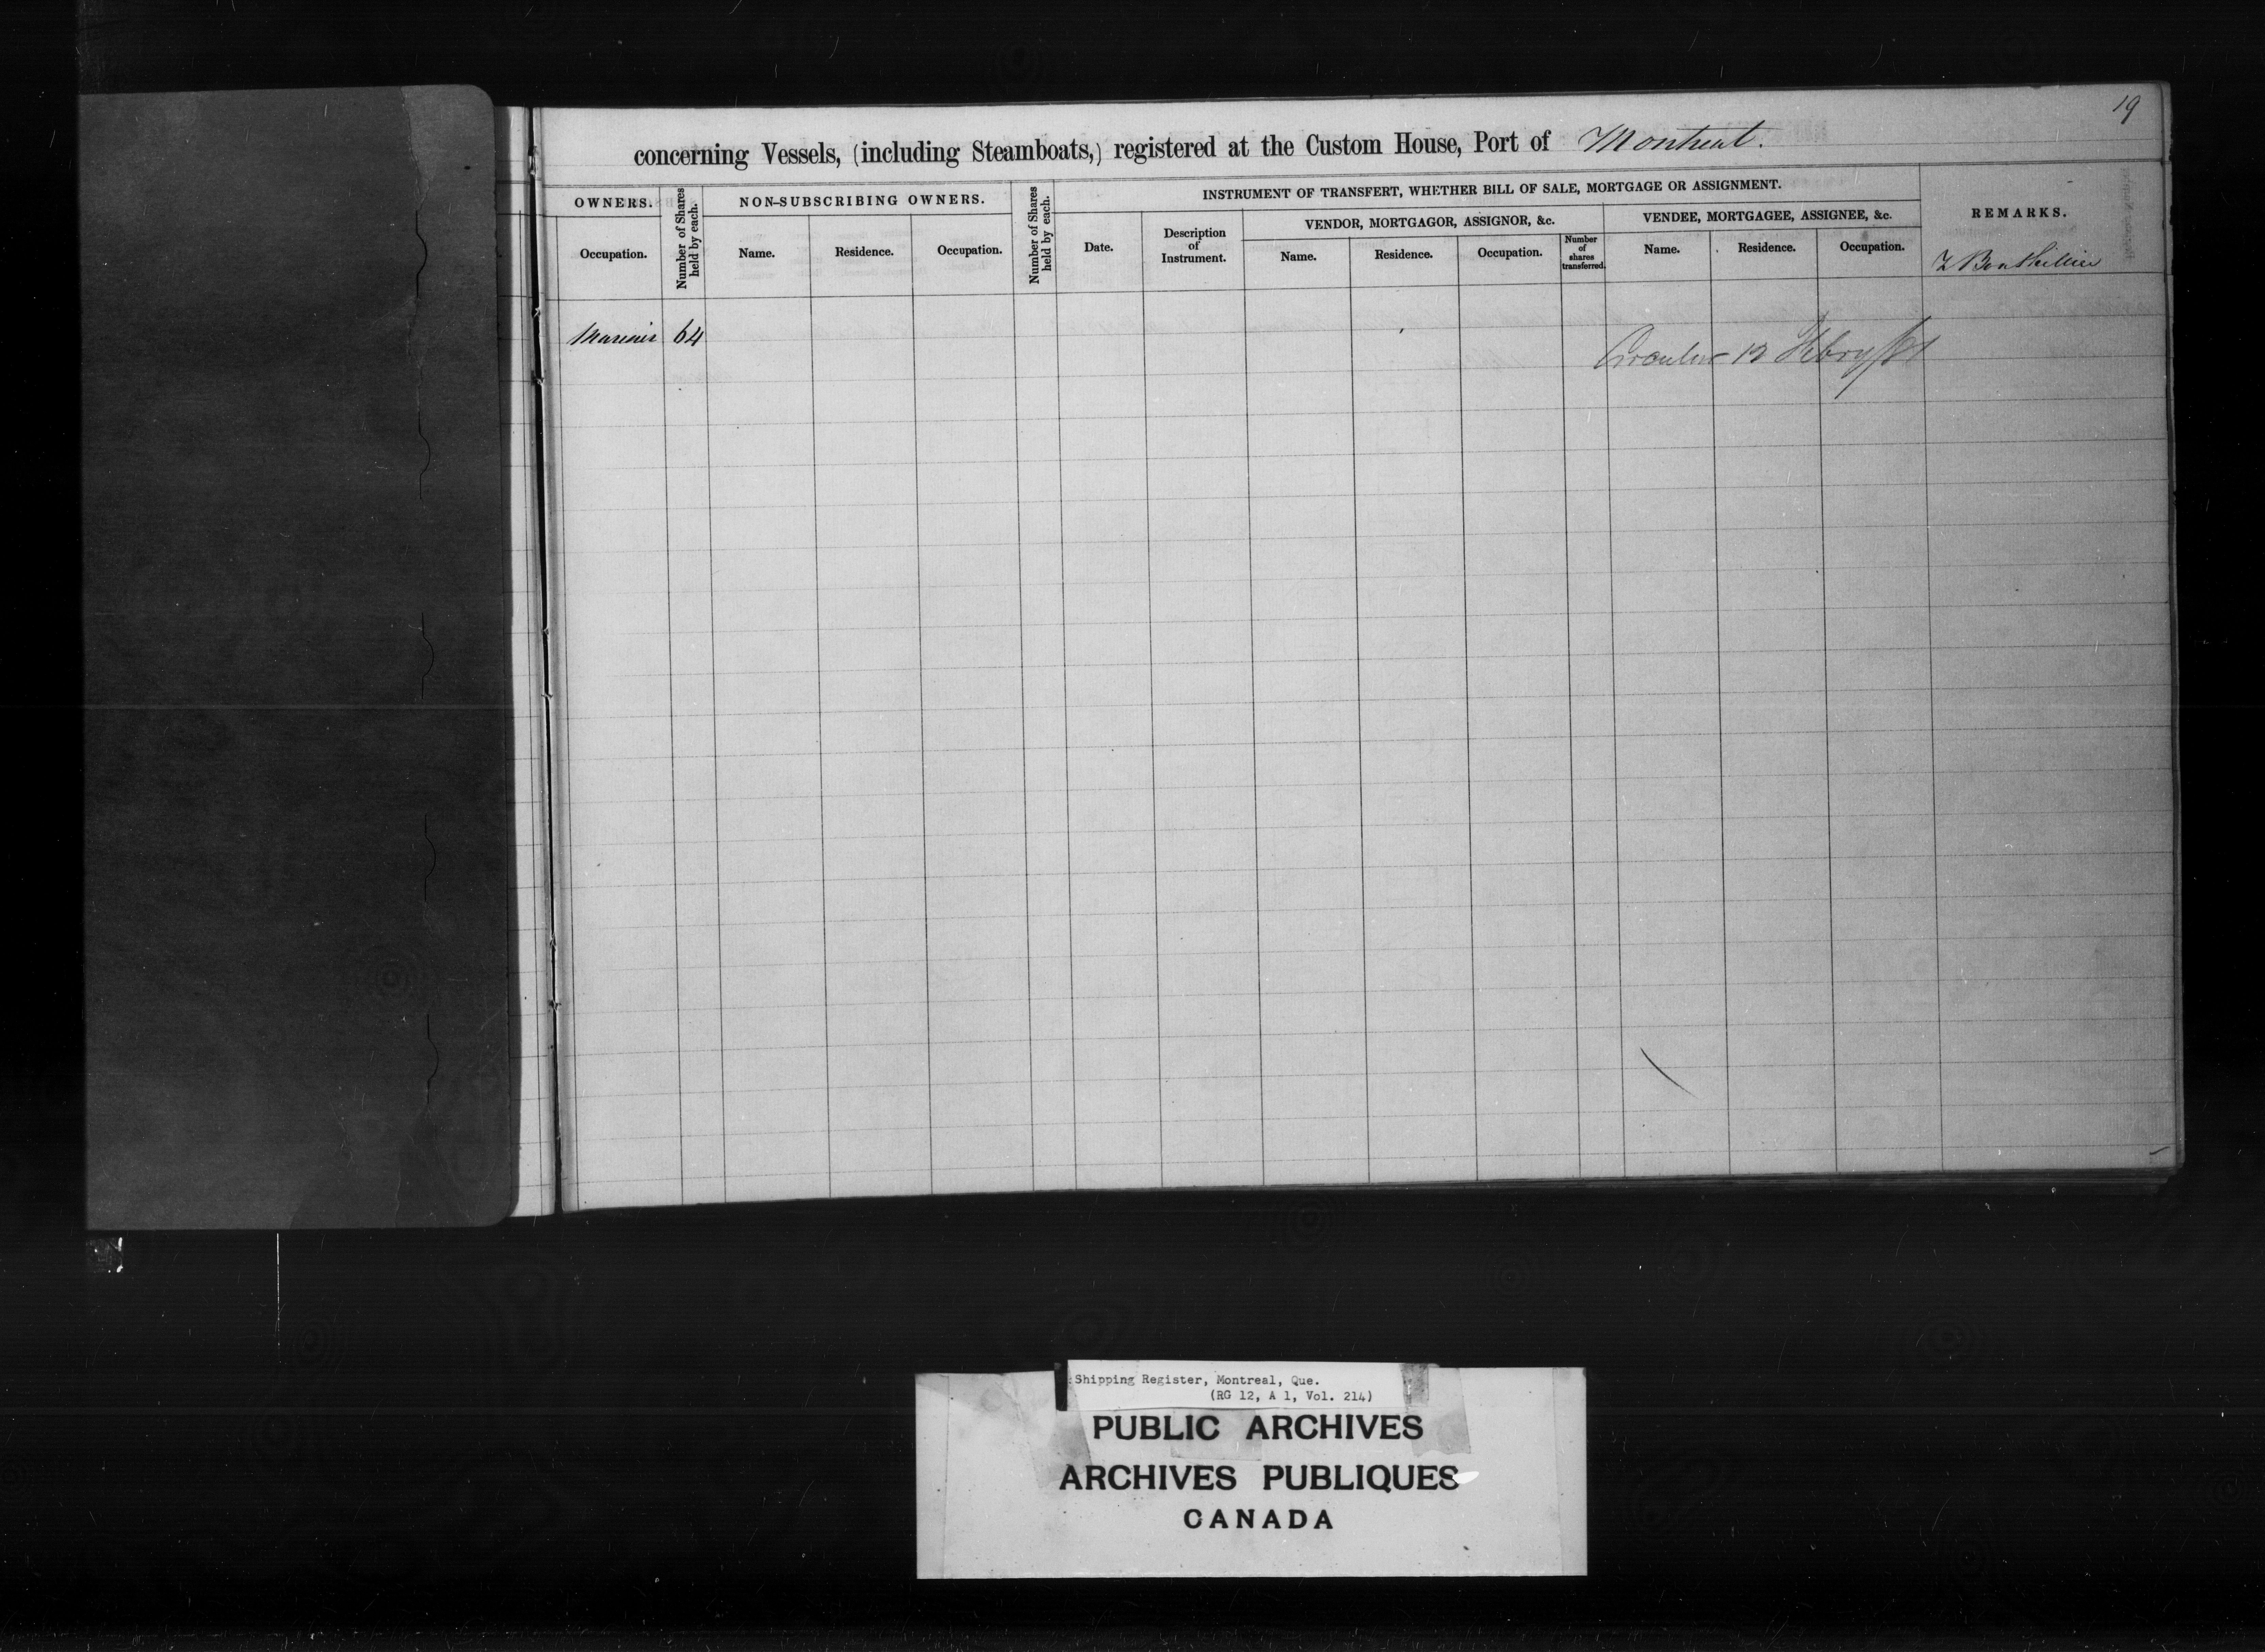 19
concerning Vessels, (including Steamboats,) registered at the Custom House, Port of Montreal.
OWNERS.
Number of Shares held by each.
NON-SUBSCRIBING OWNERS.
Number of Shares held by each.
INSTRUMENT OF TRANSFERT, WHETHER BILL OF SALE, MORTGAGE OR ASSIGNMENT.
REMARKS.
VENDOR, MORTGAGOR, ASSIGNOR, &c.
VENDEE, MORTGAGEE, ASSIGNEE, &c.
Occupation.
Name.
Residence.
Occupation.
Date.
Description of Instrument.
Name.
Residence.
Occupation.
Number of shares transferred.
Name.
Residence.
Occupation.
Mariner 64
Circular 12 Febry
Shipping Register, Montreal, Que.
(RG 12, A 1, Vol. 214)
PUBLIC ARCHIVES
ARCHIVES PUBLIQUES
CANADA